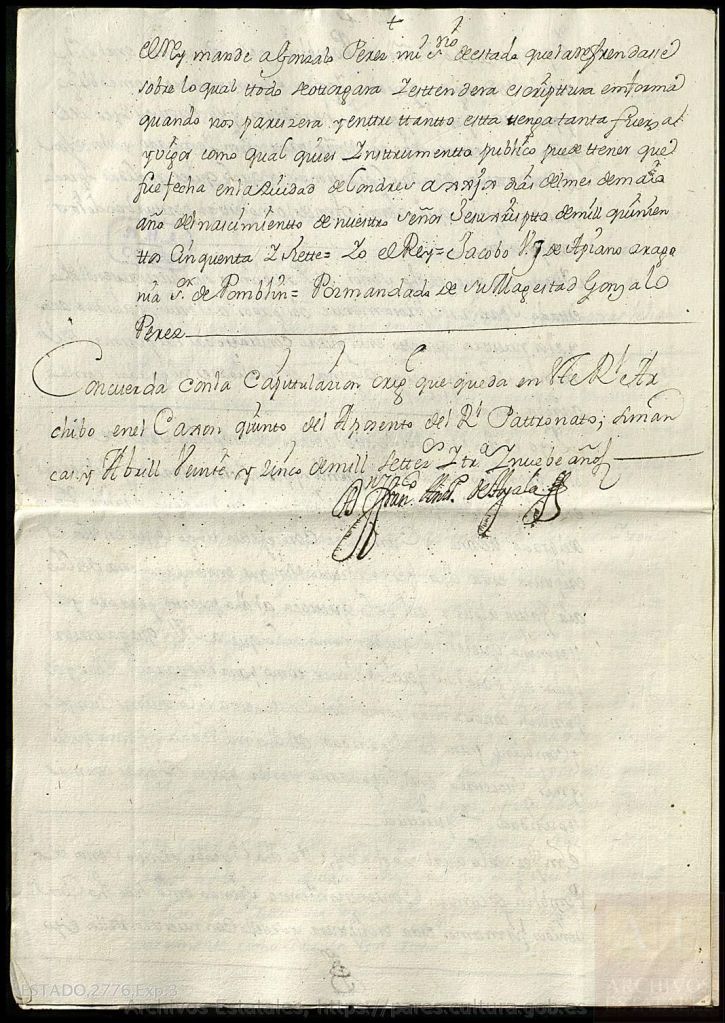 +
el Rey mande a Gonzalo Perez mi S.rio de estado que la refrendasse
sobre lo qual ttodo se ottorgara Y esttendera escripttura en forma
quando nos pareszera y entre ttantto estta ttenga tanta fuerza
y vigor como qual quier Insttrumentto publico puede ttener que
fue fecha en la Ziudad de Londres a dias del mes de
año del nascimientto de nuestro Señor Jesuxpto de mill quinien
ttos Cinquenta Y siette = Yo el Rey = Jacobo de Apiano arago
nia S.or de Pomblin = Por mandado de su Magestad Gonzalo
Perez
Concuerda con la Capittulazion orig.l que queda en este R.l Ar
chibo en el Caxon quinto del Aposento del R.l Pattronato; Siman
cas y Abrill Veinte y Zinco de mill settez.s Y tr.a Y nuebe años
de Ayala
ESTADO,2776,Exp.3
Archivos Estatales, https://pares.cultura.gob.es